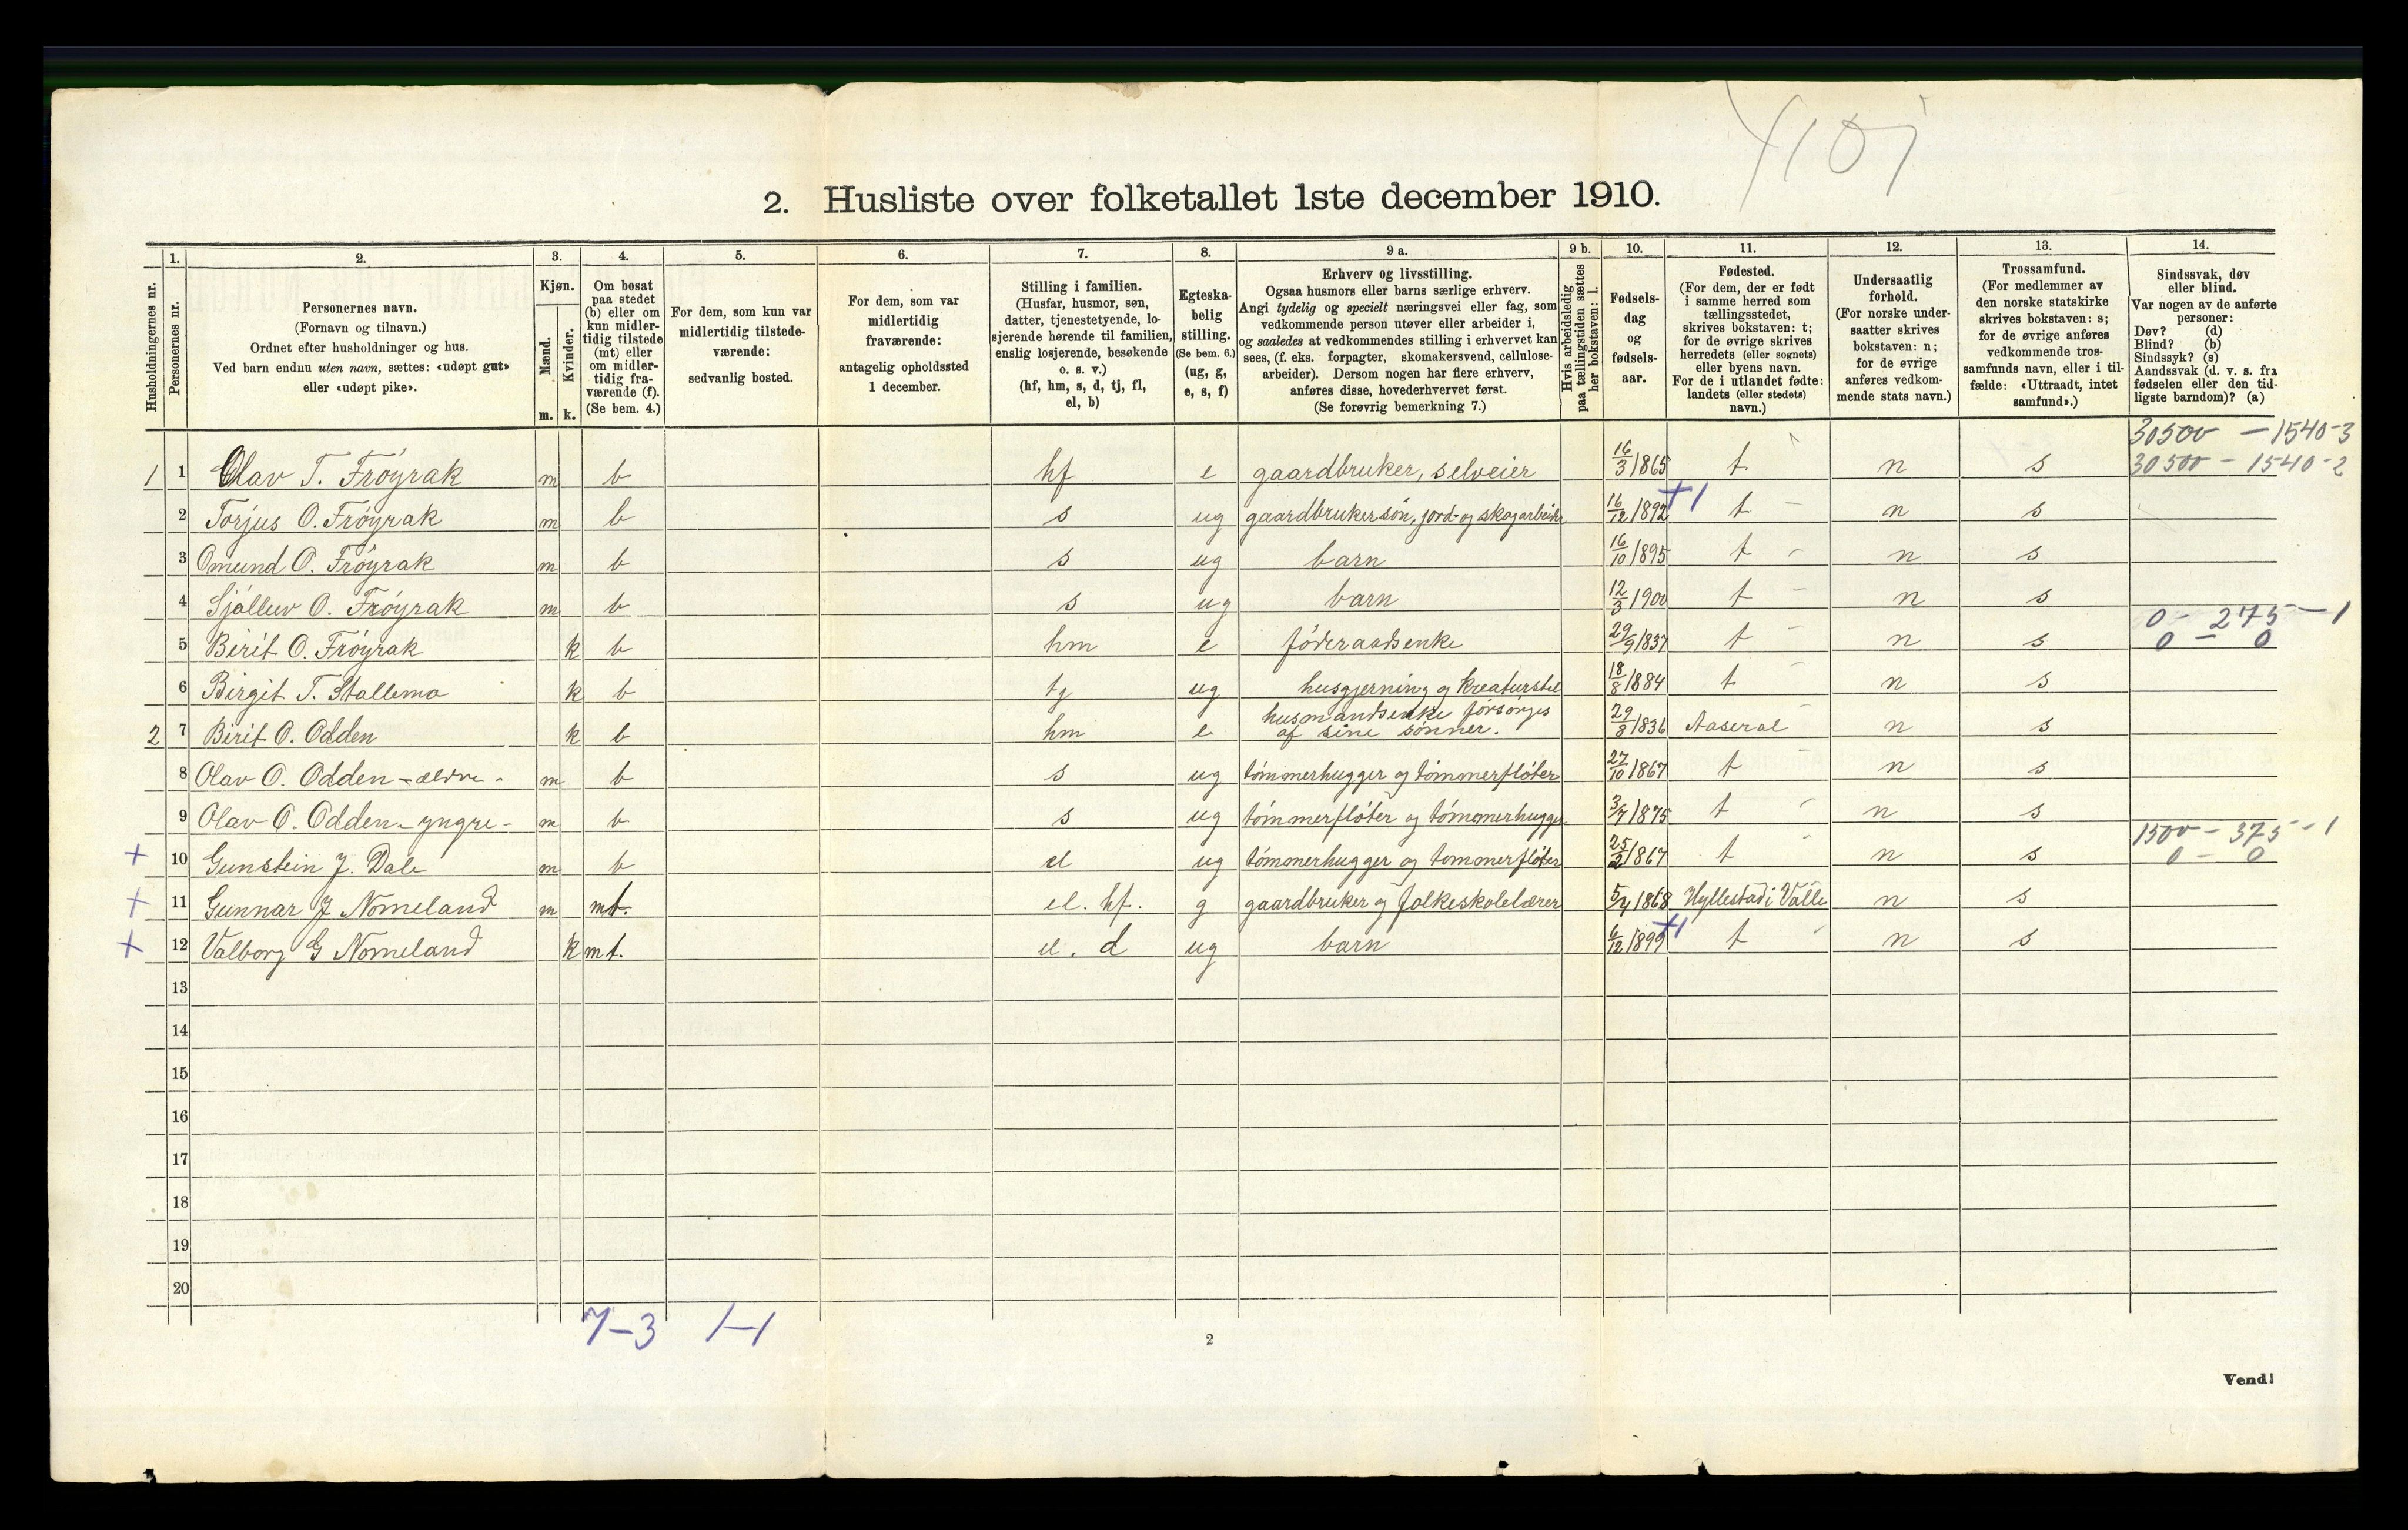 2. Husliste over folketallet 1ste december 1910.
Husholdningernes nr.
1. Personernes nr.
2. Personernes navn.
(Fornavn og tilnavn.)
Ordnet efter husholdninger og hus.
Ved barn endnu uten navn, sættes: «udøpt gut»
eller «udøpt pike».
3. Kjøn.
Mænd. m.
Kvinder. k.
4. Om bosat
paa stedet
(b) eller om
kun midler-
tidig tilstede
(mt) eller
om midler-
tidig fra-
værende (f).
(Se bem. 4.)
5. For dem, som kun var
midlertidig tilstede-
værende:
sedvanlig bosted.
6. For dem, som var
midlertidig
fraværende:
antagelig opholdssted
1 december.
7. Stilling i familien.
(Husfar, husmor, søn,
datter, tjenestetyende, lo-
sjerende hørende til familien,
enslig losjerende, besøkende
o. s. v.)
(hf, hm, s, d, tj, fl,
el, b)
8. Egteska-
belig
stilling.
(Se bem. 6.)
(ug, g,
e, s, f)
9 a. Erhverv og livsstilling.
Ogsaa husmors eller barns særlige erhverv.
Angi tydelig og specielt næringsvei eller fag, som
vedkommende person utøver eller arbeider i,
og saaledes at vedkommendes stilling i erhvervet kan
sees, (f. eks. forpagter, skomakersvend, cellulose-
arbeider). Dersom nogen har flere erhverv,
anføres disse, hovederhvervet først.
(Se forøvrig bemerkning 7.)
9 b. Hvis arbeidsledig
paa tællingstiden sættes
her bokstaven: l.
10. Fødsels-
dag
og
fødsels-
aar.
11. Fødested.
(For dem, der er født
i samme herred som
tællingsstedet,
skrives bokstaven: t;
for de øvrige skrives
herredets (eller sognets)
eller byens navn.
For de i utlandet fødte:
landets (eller stedets)
navn.)
12. Undersaatlig
forhold.
(For norske under-
saatter skrives
bokstaven: n;
for de øvrige
anføres vedkom-
mende stats navn.)
13. Trossamfund.
(For medlemmer av
den norske statskirke
skrives bokstaven: s;
for de øvrige anføres
vedkommende tros-
samfunds navn, eller i til-
fælde: «Uttraadt, intet
samfund».)
14. Sindssvak, døv
eller blind.
Var nogen av de anførte
personer:
Døv? (d)
Blind? (b)
Sindssyk? (s)
Aandssvak (d. v. s. fra
fødselen eller den tid-
ligste barndom)? (a)
30500 - 1540-3
1 1 Olav T. Fröyrak m b hf e gaardbruker, selveier 16/3 1865 t n s 30500 - 1540-2
2 Torjus O. Fröyrak m b s ug gaardbrukersön, jord- og skogarbeider 16/12 1892 +1 t n s
3 Omund O. Fröyrak m b s ug barn 16/10 1895 t n s
4 Sjölluv O. Fröyrak m b s ug barn 12/3 1900 t n s
0 - 275 - 1
5 Birit O. Fröyrak k b hm e föderaadsenke 29/9 1837 t n s 0 - 0
6 Birgit T. Stallemo k b tj ug husgjerning og kreaturstel 18/8 1884 t n s
2 7 Birit O. Odden k b hm e husmandsenke forsörges
af sine sönner. 29/8 1836 Aaseral n s
8 Olav O. Odden - ældre - m b s ug tömmerhugger og tömmerflöter 27/10 1867 t n s
9 Olav O. Odden - yngre - m b s ug tömmerflöter og tömmerhugger 3/7 1875 t n s
1500 - 375 - 1
+ 10 Gunstein J. Dale m b el ug tömmerhugger og tommerflöter 25/2 1867 t n s 0 - 0
+ 11 Gunnar J Nomeland m mt. el. hf. g gaardbruker og folkeskolelærer 5/4 1868 Hyllestad i Valle n s
+ 12 Valborg G Nomeland k mt. el. d ug barn 6/12 1899 +1 t n s
13
14
15
16
17
18
19
20
7-3 1-1
2
Vend!